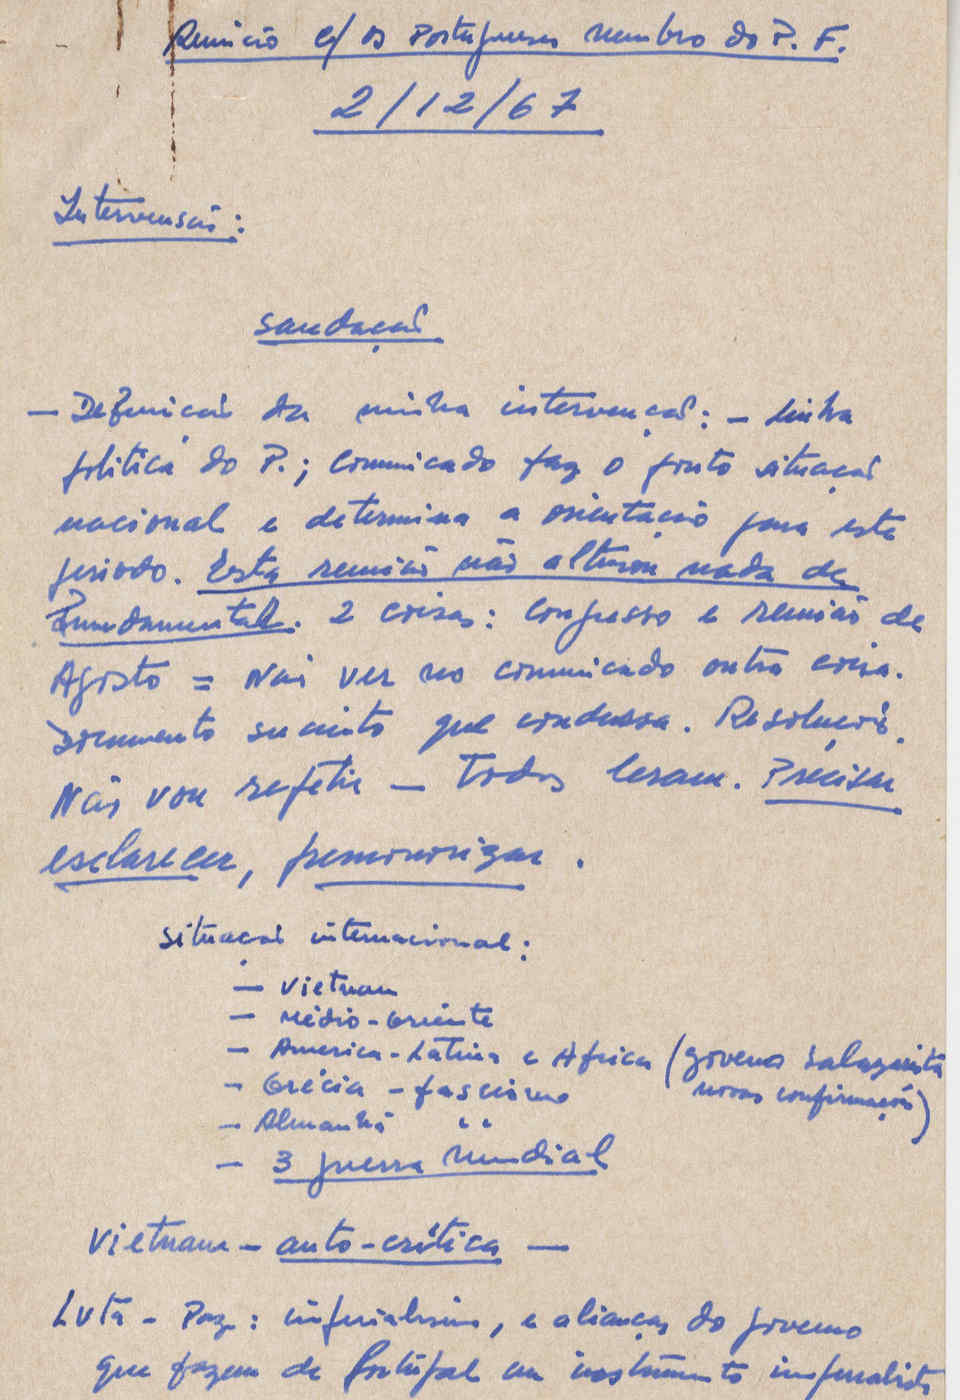 Reunião c/ os Portugueses membro do P. F.
2/12/67
Intervensão:
Saudação
— Definição da minha intervenção: — linha
política do P.; comunicado faz o ponto situação
nacional e determina a orientação para este
periodo. Esta reunião não alterou nada de
fundamental. 2 coisas: Congresso e reunião de
Agosto = Não ver no comunicado outra coisa.
Documento sucinto que condensa. Resolução.
Não vou repetir — Todos leram. Precisar
esclarecer, pormenorizar.
Situação internacional:
— Vietnam
— Médio-Oriente
— America-Latina e Africa (governo Salazarista
novas confirmações)
— Grécia - fascismo
— Almanhã " 
— 3 guerra mundial
Vietnam — auto-crítica —
Luta - Paz: imperialismo, e alianças do governo
que fazem de Portugal um instrumento imperialista